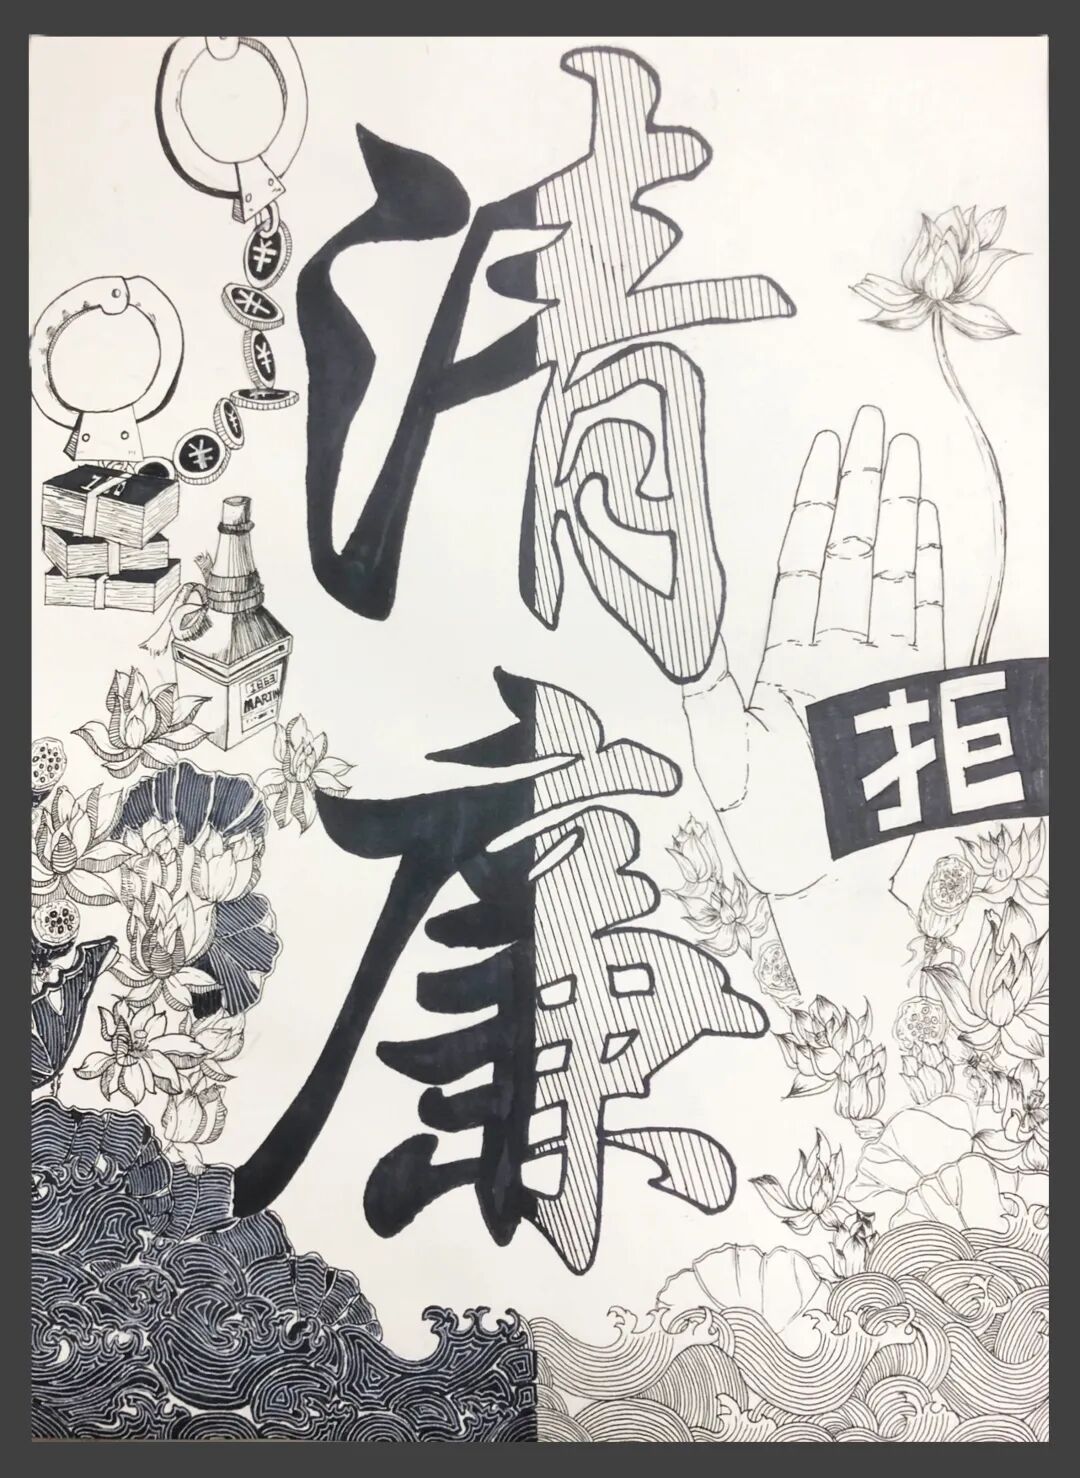 清廉
拒
MARTIN
¥
¥
¥
¥
¥